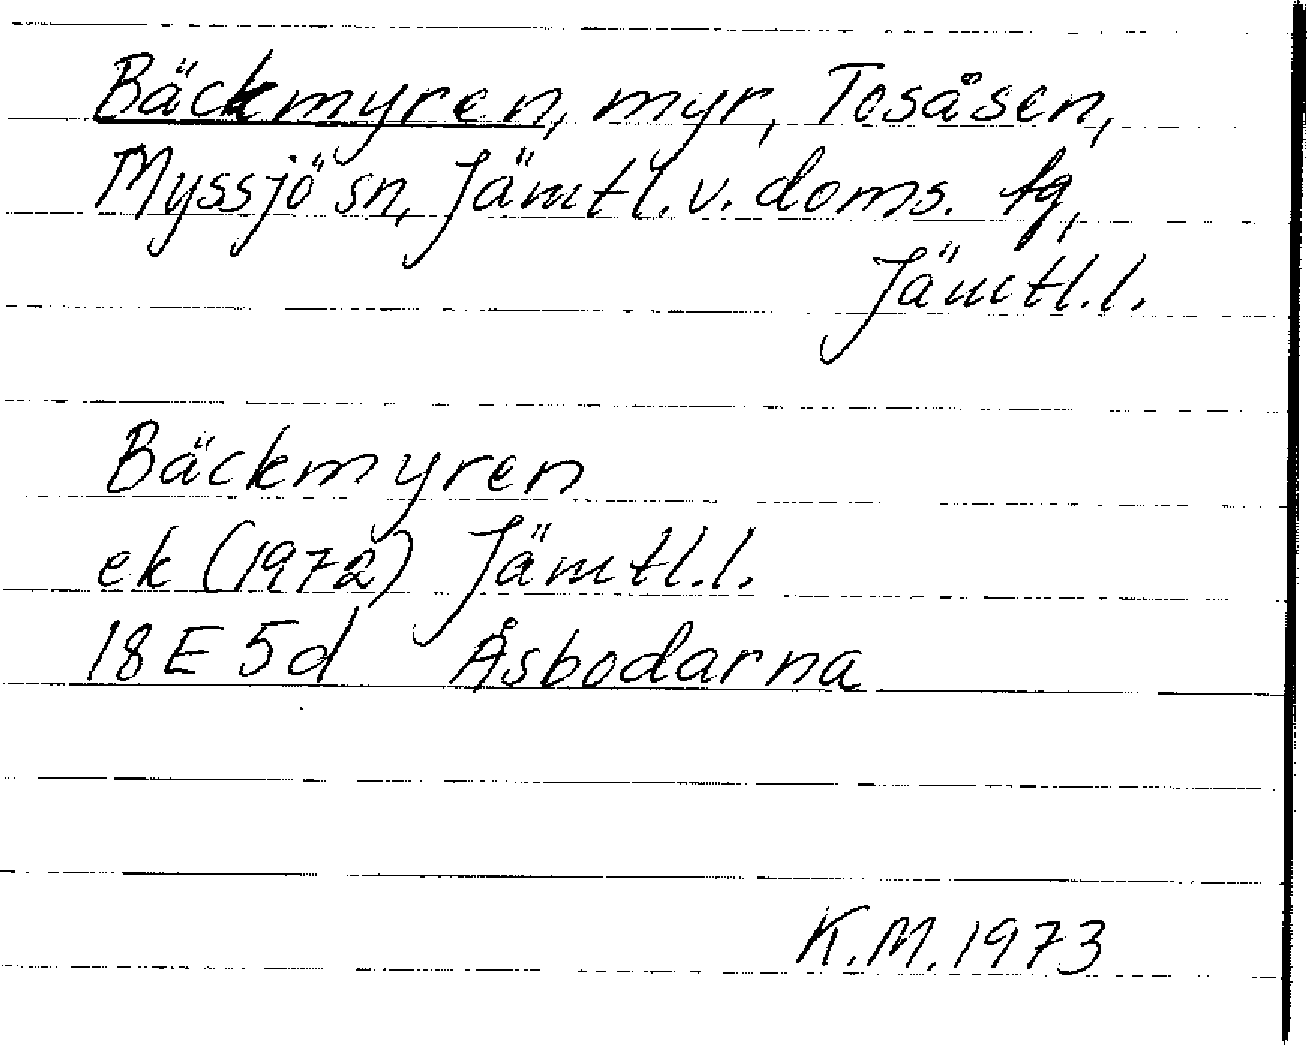 Bäckmyren, myr, Tosåsen,
Myssjö sn, Jämtl. v. doms. tg,
Jämtl.l.
Bäckmyren
ek (1972) Jämtl.l.
18E 5d Åsbodarna
K.M. 1973